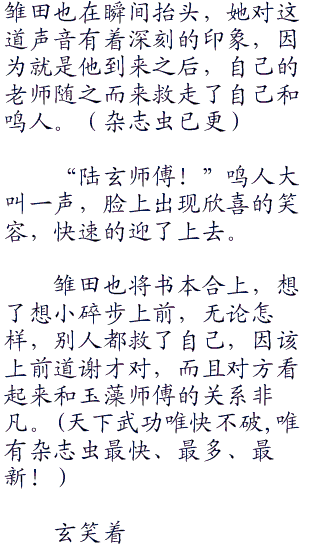 雏田也在瞬间抬头，她对这
道声音有着深刻的印象，因
为就是他到来之后，自己的
老师随之而来救走了自己和
鸣人。（杂志虫已更）
“陆玄师傅！”鸣人大
叫一声，脸上出现欣喜的笑
容，快速的迎了上去。
雏田也将书本合上，想
了想小碎步上前，无论怎
样，别人都救了自己，因该
上前道谢才对，而且对方看
起来和玉藻师傅的关系非
凡。(天下武功唯快不破,唯
有杂志虫最快、最多、最
新！)
玄笑着